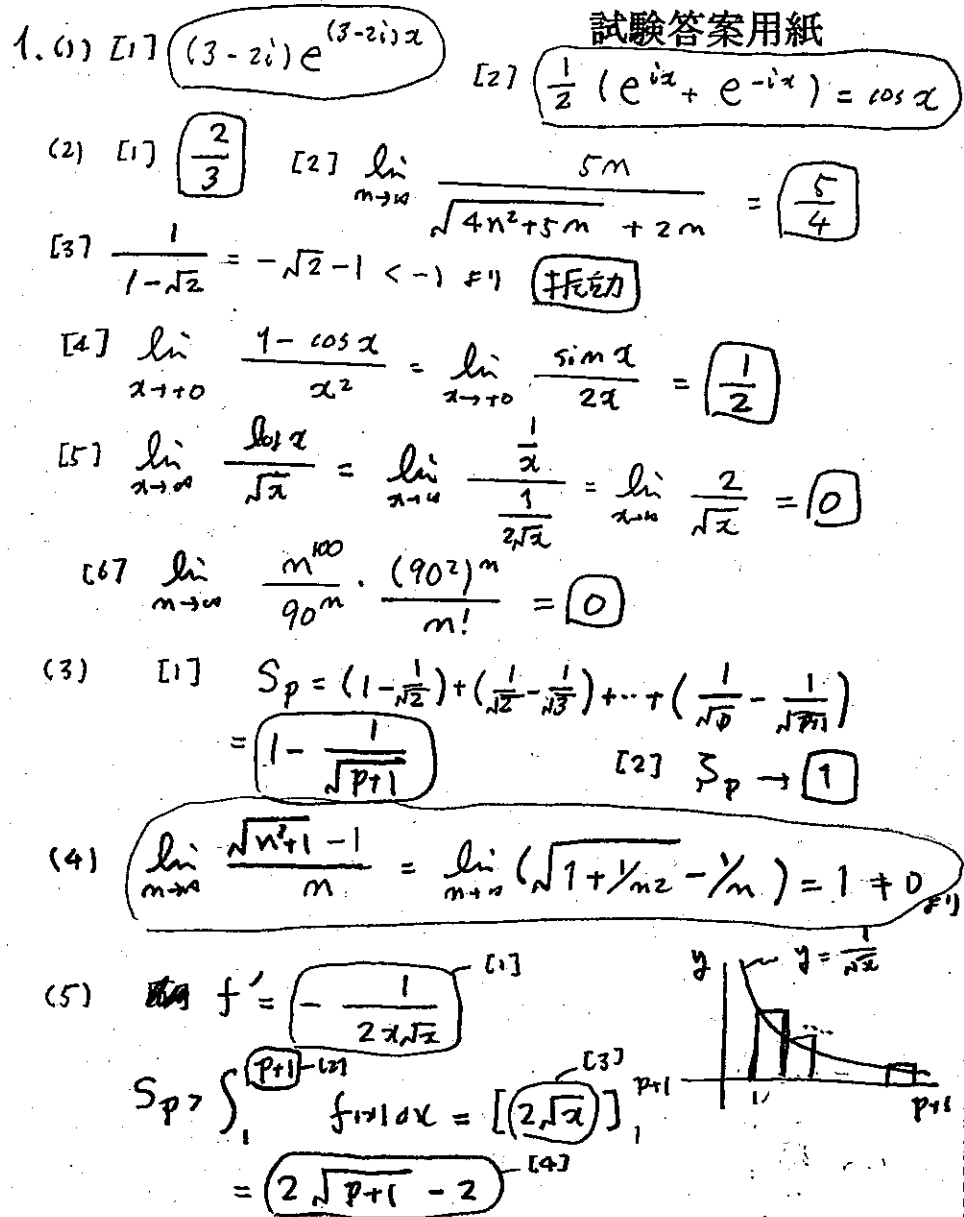 試験答案用紙
1. (1) [1] (3-2i) e^{(3-2i)x} [2] \frac{1}{2} (e^{ix} + e^{-ix}) = cos x
(2) [1] \frac{2}{3} [2] \lim_{n→∞} \frac{5n}{\sqrt{4n^2+5n} + 2n} = \frac{5}{4}
[3] \frac{1}{1-\sqrt{2}} = -\sqrt{2}-1 < -1 より 振動
[4] \lim_{x→+0} \frac{1-cos x}{x^2} = \lim_{x→+0} \frac{sin x}{2x} = \frac{1}{2}
[5] \lim_{x→∞} \frac{log x}{\sqrt{x}} = \lim_{x→∞} \frac{\frac{1}{x}}{\frac{1}{2\sqrt{x}}} = \lim_{x→∞} \frac{2}{\sqrt{x}} = 0
[6] \lim_{n→∞} \frac{n^{100}}{90^n} · \frac{(90^2)^n}{n!} = 0
(3) [1] S_p = (1-\frac{1}{\sqrt{2}}) + (\frac{1}{\sqrt{2}}-\frac{1}{\sqrt{3}}) + … + (\frac{1}{\sqrt{p}} - \frac{1}{\sqrt{p+1}})
= 1 - \frac{1}{\sqrt{p+1}} [2] S_p → 1
(4) \lim_{n→∞} \frac{\sqrt{n^2+1} - 1}{n} = \lim_{n→∞} (\sqrt{1+1/n^2} - 1/n) = 1 ≠ 0 より
(5) f' = - \frac{1}{2x\sqrt{x}} [1]
y y = \frac{1}{\sqrt{x}}
S_p > \int_1^{p+1} f(x)dx = [2\sqrt{x}]_1^{p+1} [2] [3]
1 p+1
= 2\sqrt{p+1} - 2 [4]